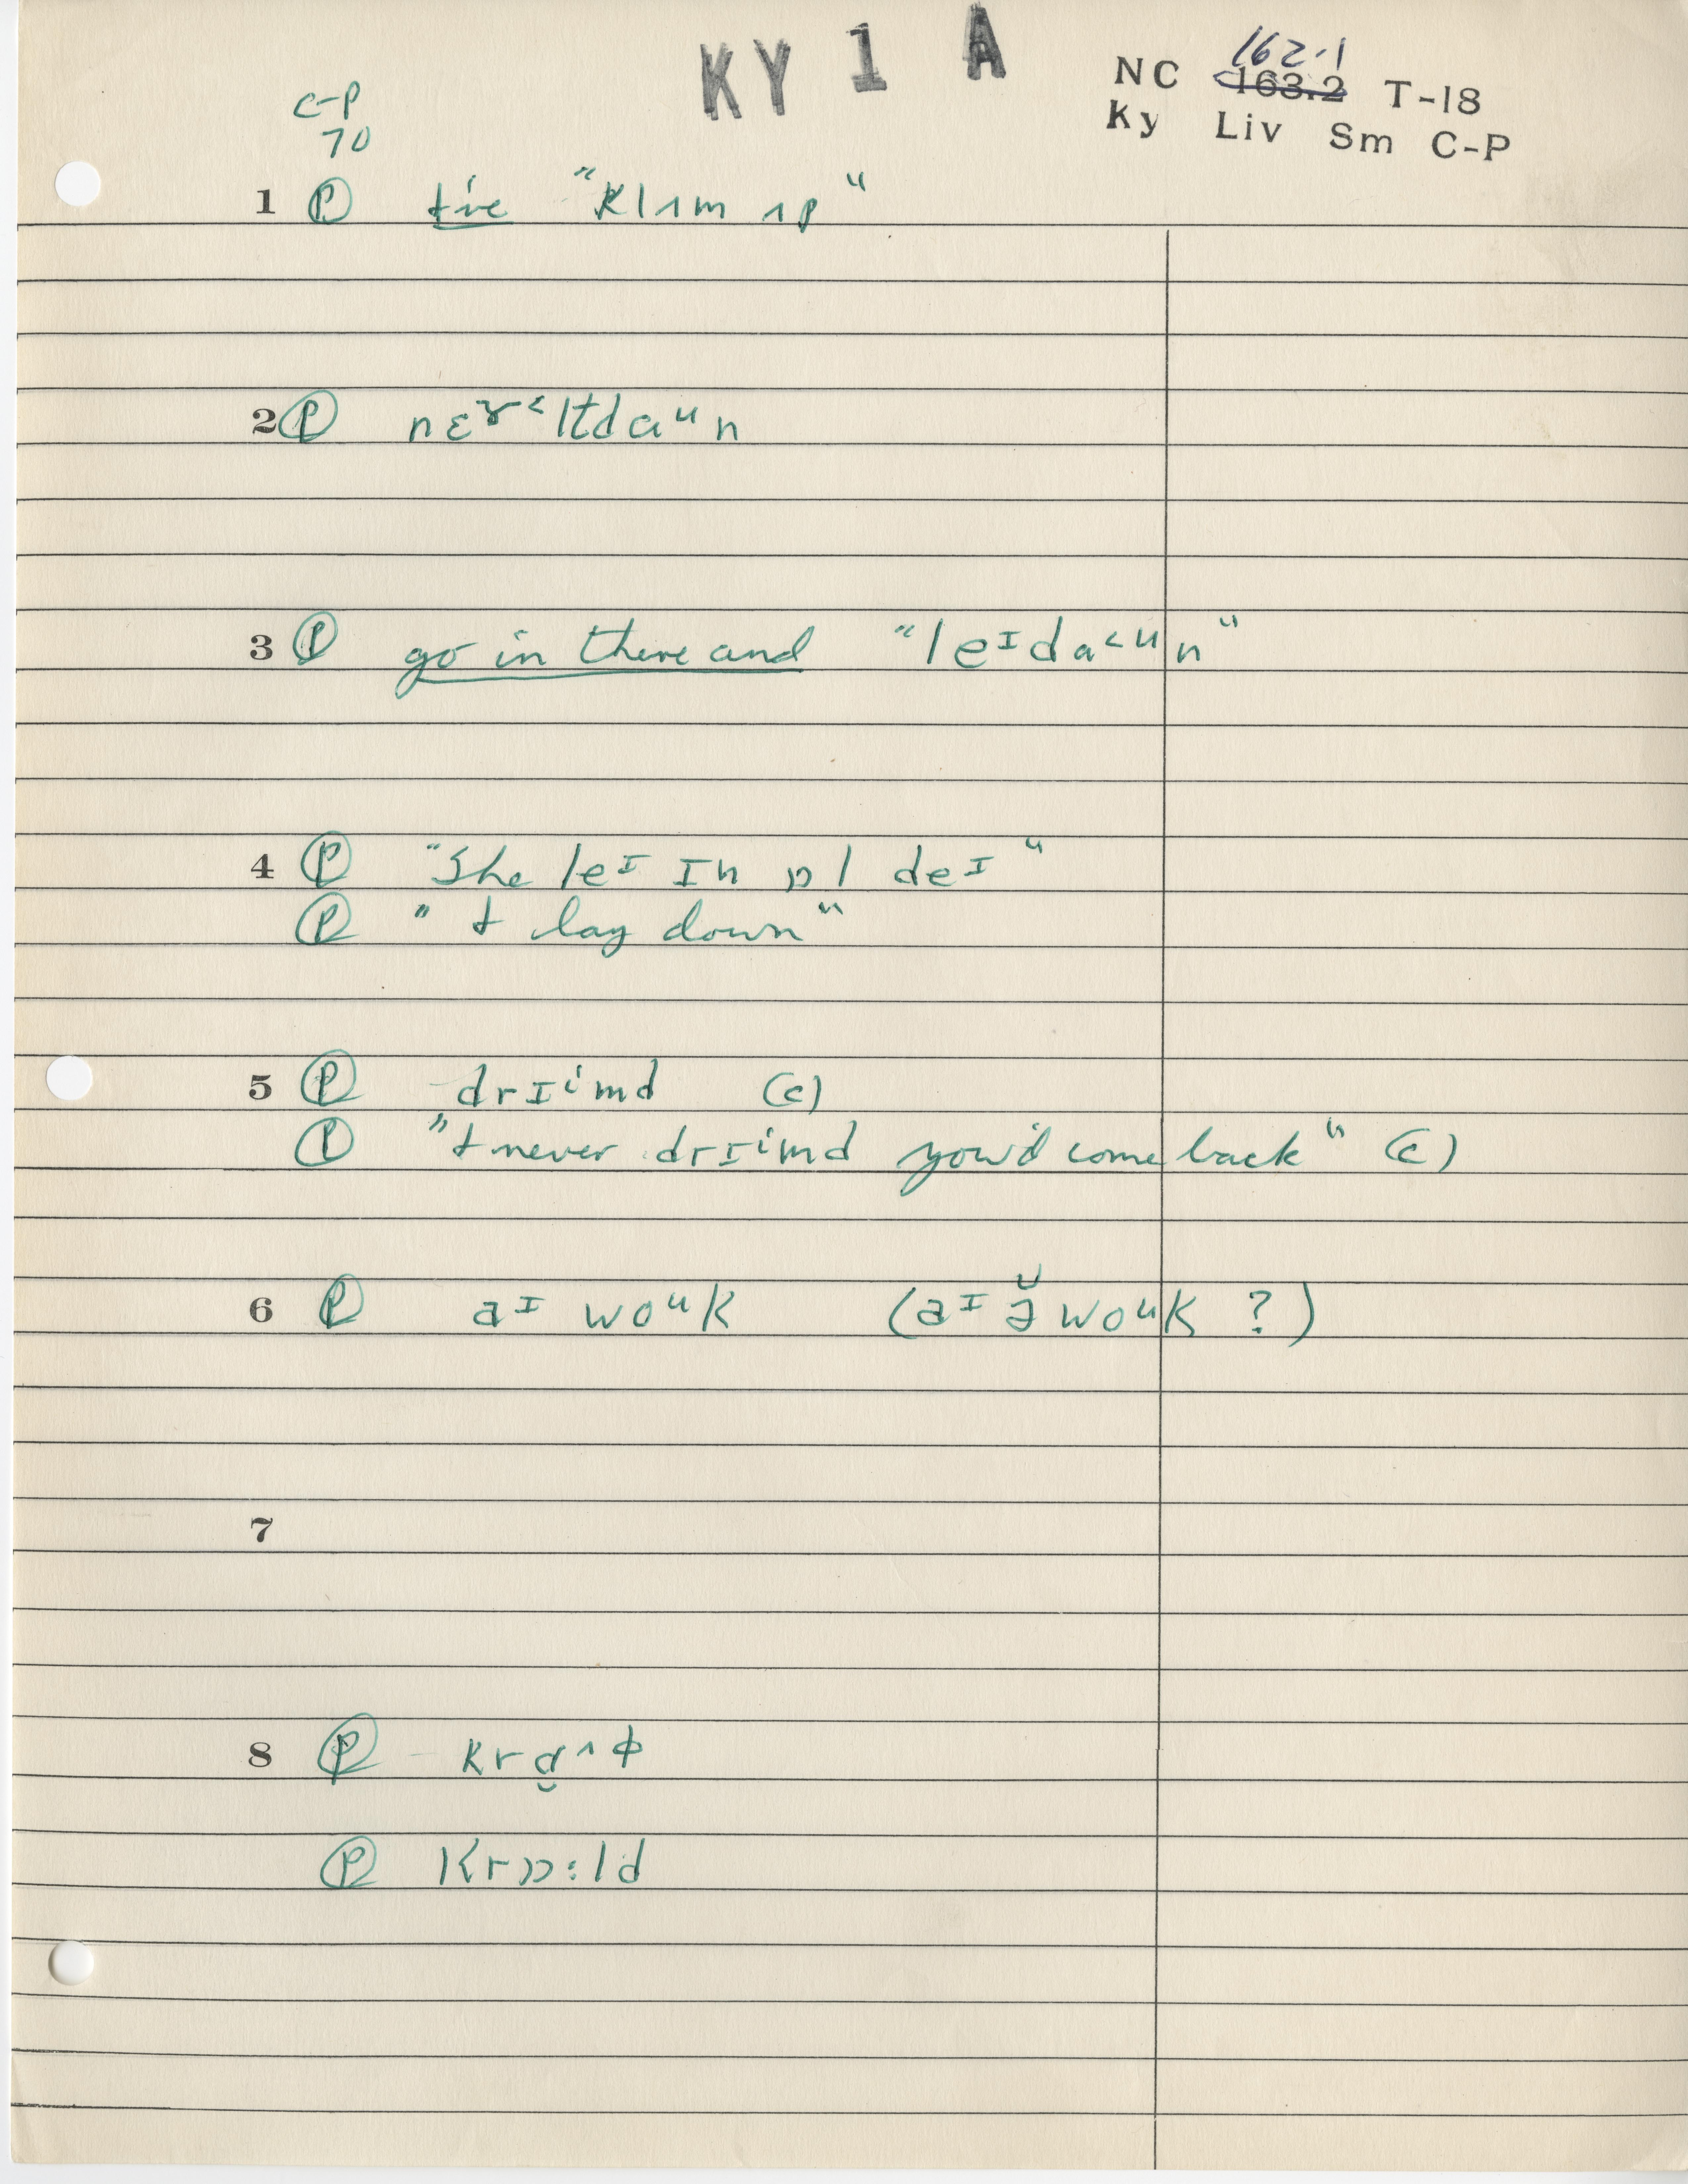 KY 1 A
162.1
NC 163.2 T-18
Ky Liv Sm C-P
C-P
70
1 Ⓟ I've "klʌm ʌp"
2 Ⓟ nɛɤ˂ltdaᵘn
3 Ⓟ go in there and "leᶦda˂ᵘn"
4 Ⓟ "She leᶦ ɪn ɒl deᶦ"
Ⓟ "I lay down"
5 Ⓟ drɪⁱmd (c)
Ⓟ "I never drɪⁱmd you'd come back" (c)
6 Ⓟ aᶦ woᵘk (aᶦ ə̆ woᵘk ?)
7
8 Ⓟ krɑ̬^ɸ
Ⓟ krɒːld